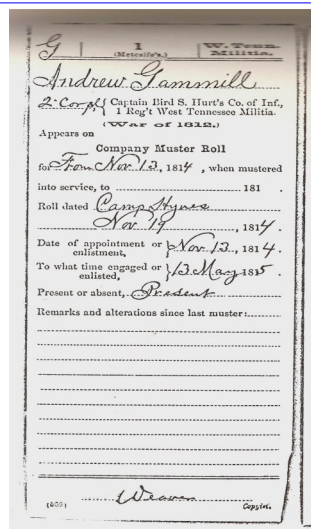 G | 1 | W. Tenn.
(Metcalfe's.) Militia.
Andrew Gammill
2 Corpl { Captain Bird S. Hurt's Co. of Inf.,
1 Reg't West Tennessee Militia.
(War of 1812.)
Appears on
Company Muster Roll
for From Nov 13, 1814, when mustered
into service, to ........ 181 .
Roll dated Camp Hynes
Nov 19, 1814.
Date of appointment or enlistment, } Nov. 13, 1814.
To what time engaged or enlisted, } 13 May 1815.
Present or absent, Present
Remarks and alterations since last muster:
Weaver
(659) Copyist.